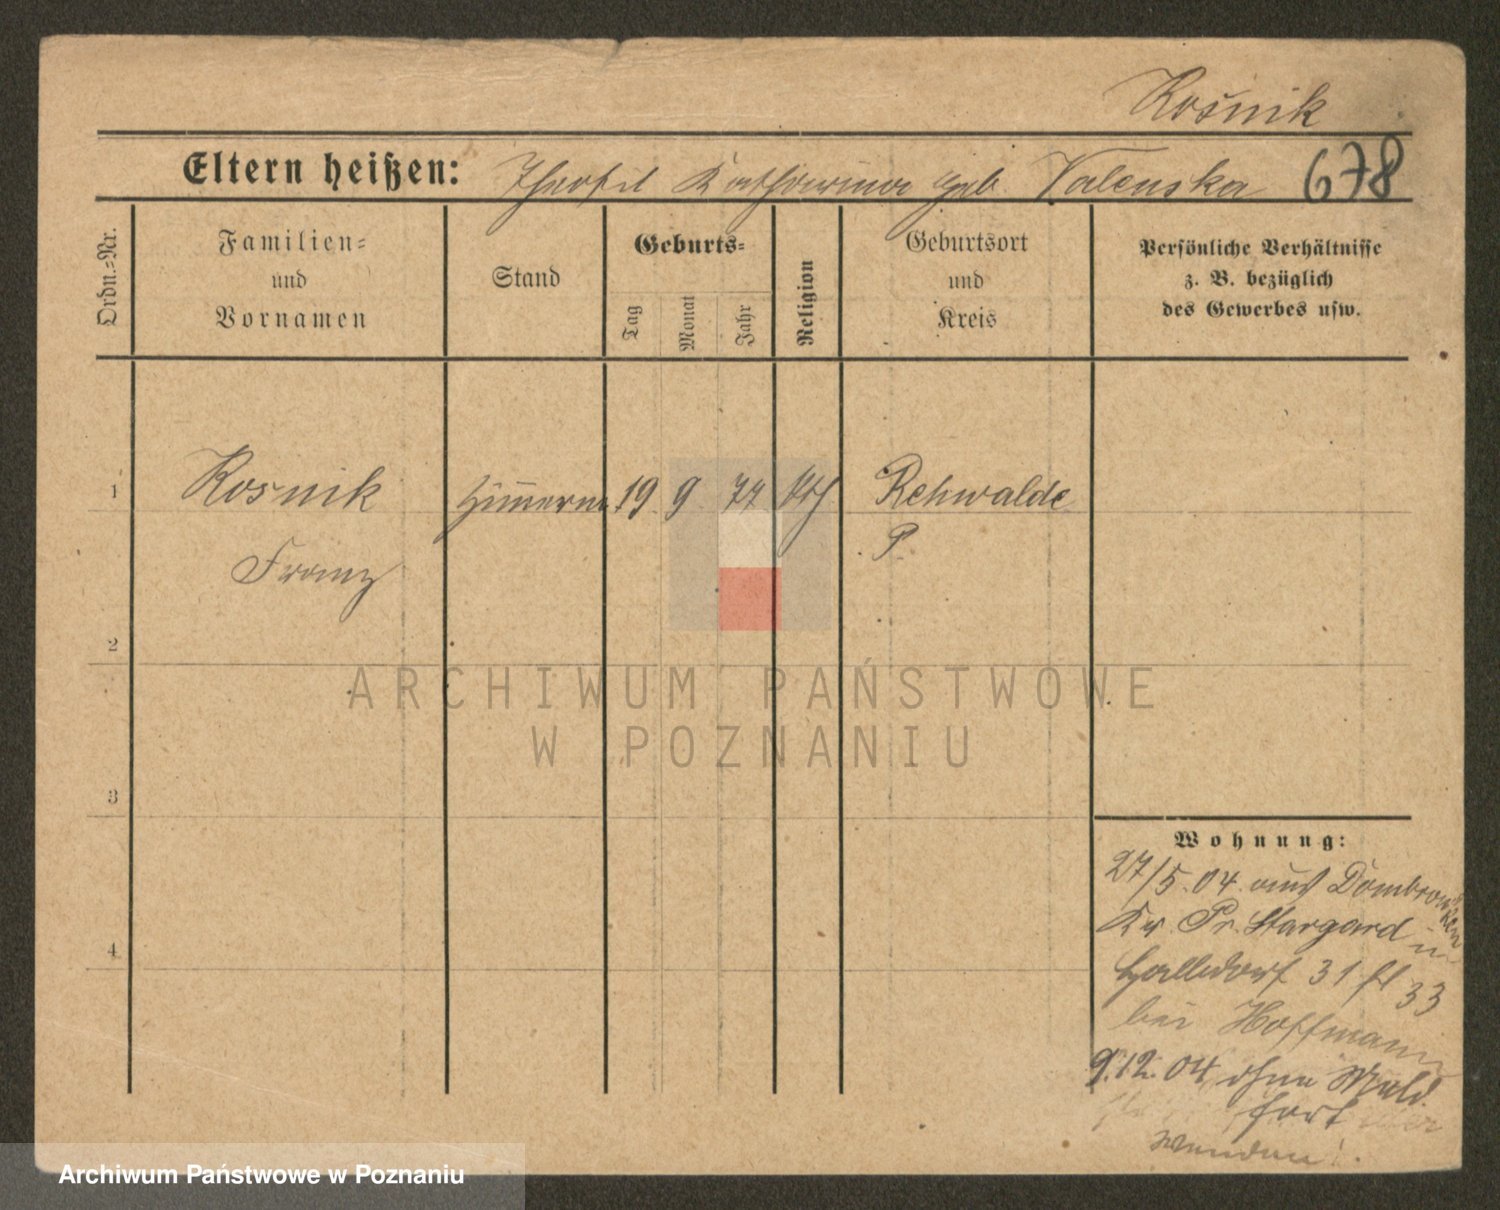 Rośnik
678
Eltern heißen: Theofil Katharina geb. Valenska
Ordn.=Nr.
Familien=
und
Vornamen
Stand
Geburts=
Tag
Monat
Jahr
Religion
Geburtsort
und
Kreis
Persönliche Verhältnisse
z. B. bezüglich
des Gewerbes usw.
1
Rosnik
19 9 77 kth
Rehwalde
Franz
P.
2
3
4
Wohnung:
27/5.04. aus Dombrowken
Kr. Pr. Stargard in
31 33
bei Hoffmann
9.12.04 ohne Meld.
fort
wenden!
ARCHIWUM PAŃSTWOWE
W POZNANIU
Archiwum Państwowe w Poznaniu